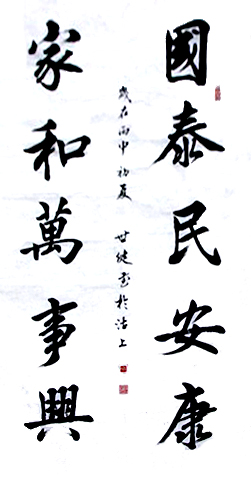 國泰民安康
家和萬事興
歲在丙申初夏 世健書於沽上